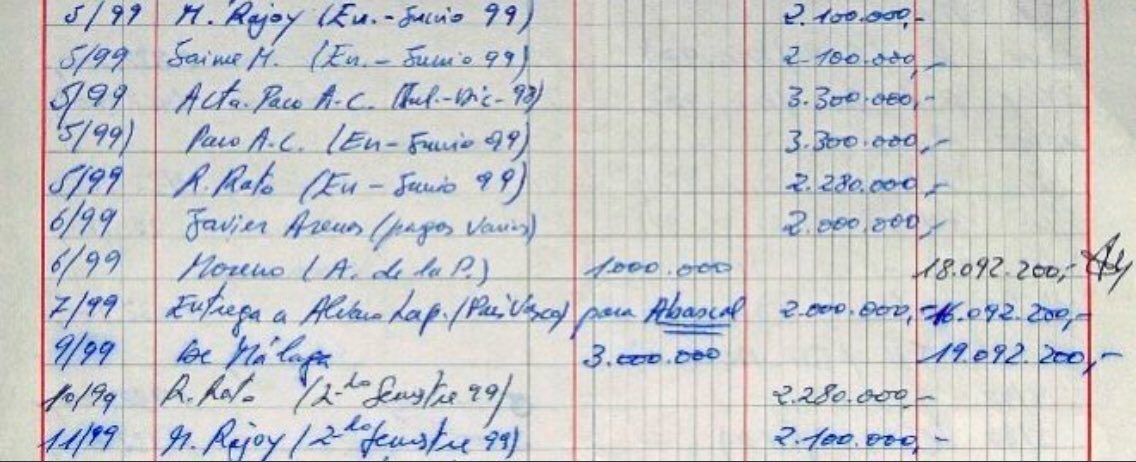 5/99 M. Rajoy (En.-Junio 99) 2.100.000,-
5/99 Jaime M. (En.-Junio 99) 2.100.000,-
5/99 Acta. Paco A.C. (Jul.-Dic-98) 3.300.000,-
5/99) Paco A.C. (En-Junio 99) 3.300.000,-
5/99 R. Rato (En-Junio 99) 2.280.000,-
6/99 Javier Arenas (pagos varios) 2.000.000,-
6/99 Moreno (A. de la P.) 1.000.000 18.092.200,-
7/99 Entrega a Alvaro Lap. (País Vasco) para Abascal 2.000.000,- 16.092.200,-
9/99 De Málaga 3.000.000 19.092.200,-
10/99 R. Rato (2-do Semestre 99) 2.280.000,-
11/99 M. Rajoy (2-do Semestre 99) 2.100.000,-